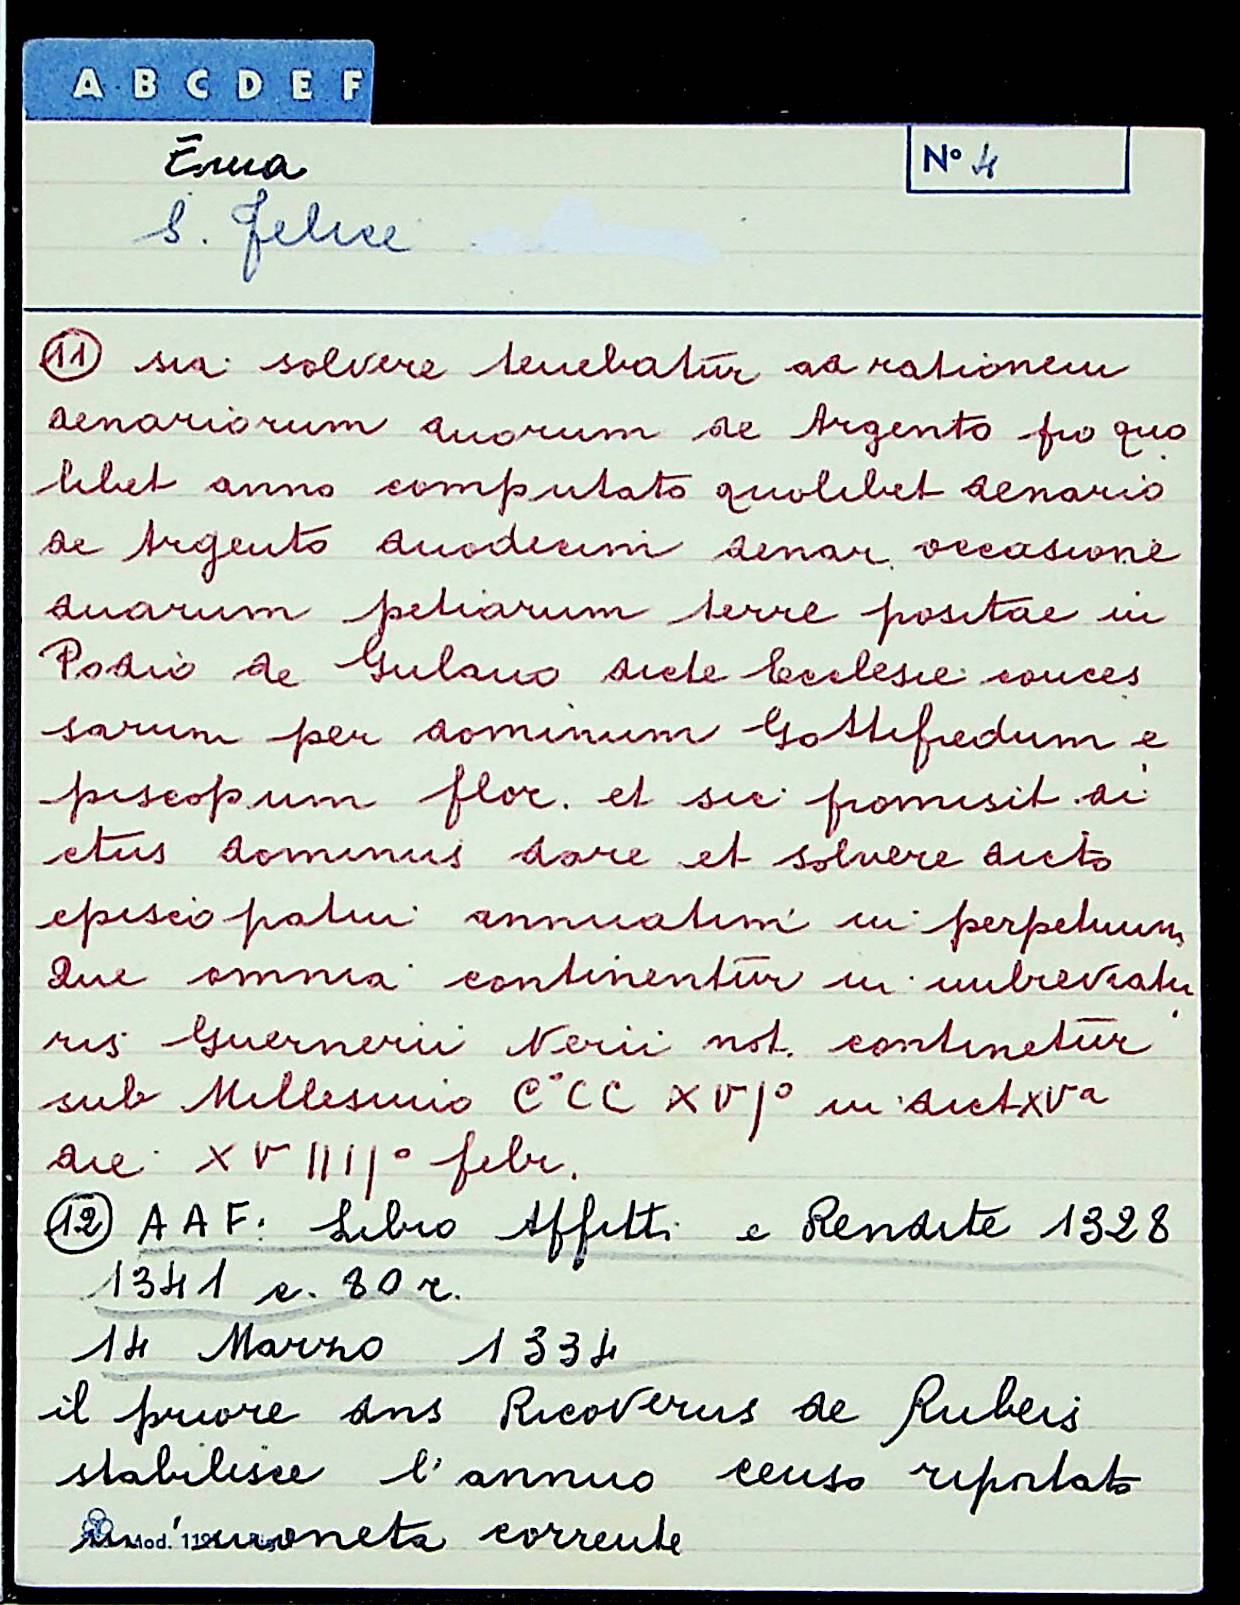 A B C D E F
Ema
N° 4
S. Felice
11 sia solvere tenebatur ad rationem
denariorum duorum de Argento pro quo
libet anno computato quolibet denario
de Argento duodecim denar. occasione
duarum petiarum terre positae in
Podio de Gulano dicte Ecclesie conces
sarum per dominum Gottifredum e
piscopum flor. et sic promisit di
ctus dominus dare et solvere dicto
episcopatui annuatim in perpetuum
Que omnia continentur in imbreviatu
ris Guernerii Nerii not. continetur
sub Millesimo C°CC XVI° in dict XVa
die XVIIII° febr.
12 AAF: Libro Affitti e Rendite 1328
1341 c. 80 r.
14 Marzo 1334
il priore dns Ricoverus de Rubeis
stabilisce l'annuo censo riportato
in moneta corrente
Mod.